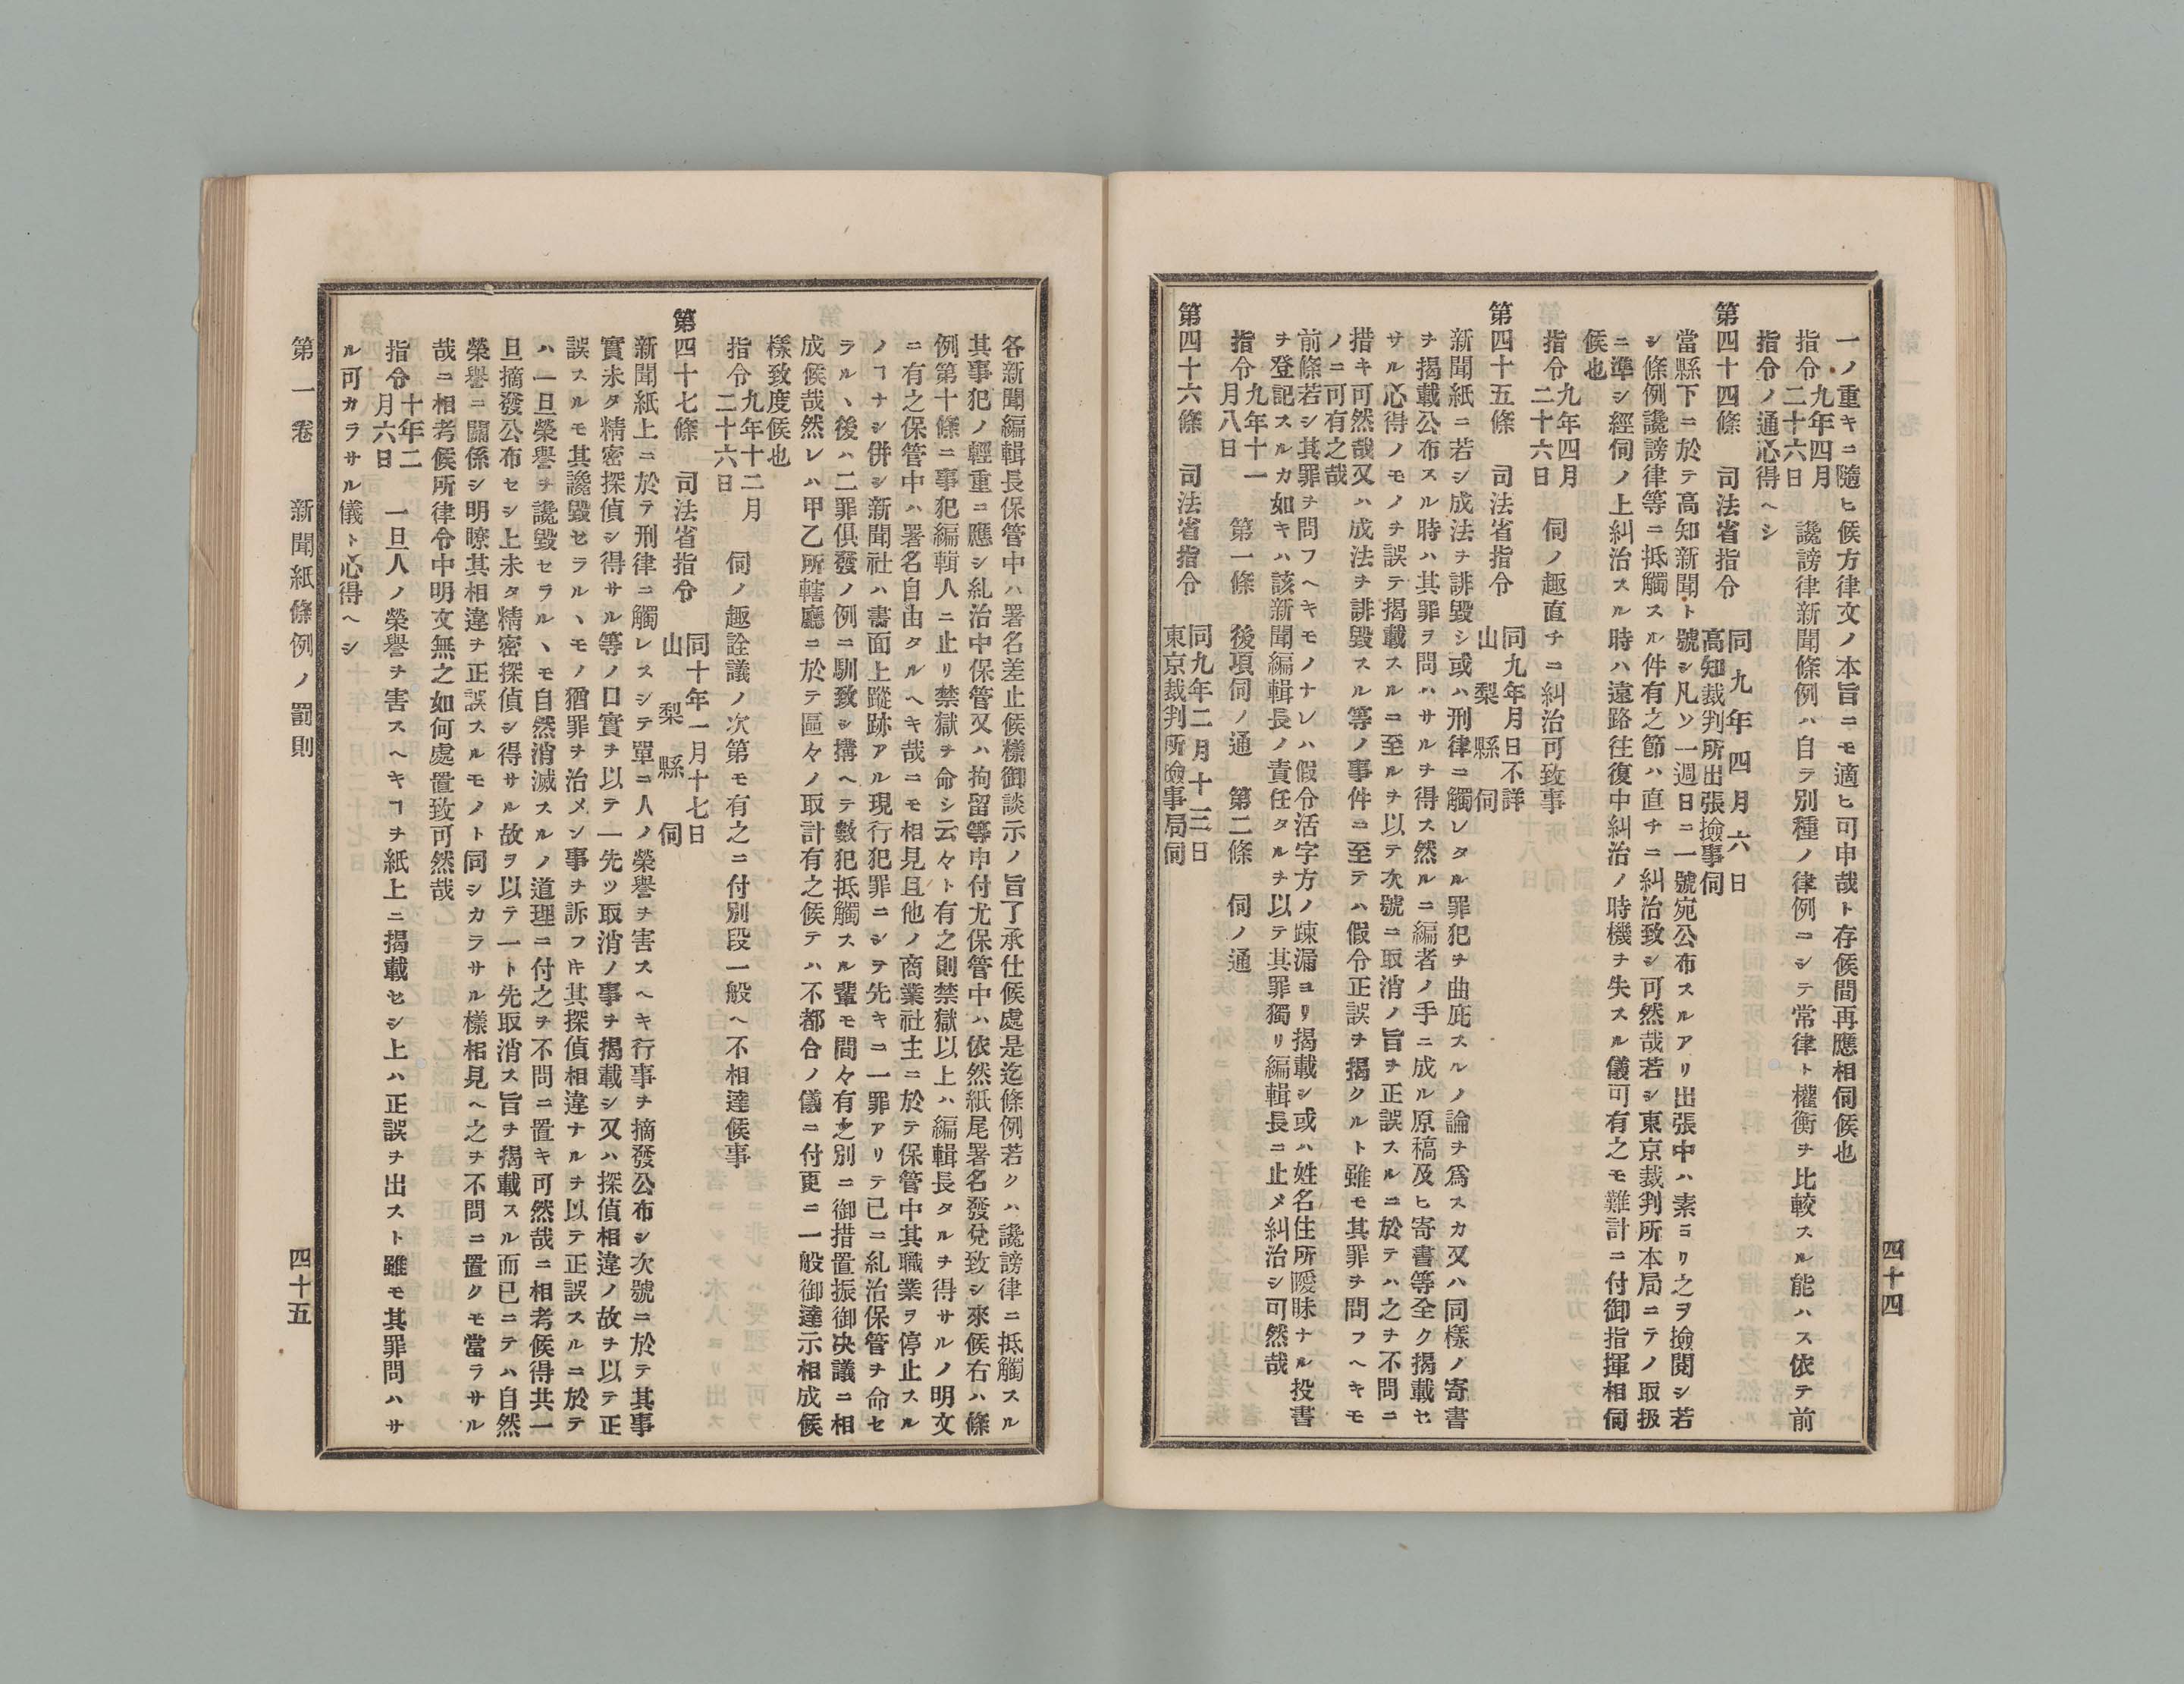 四十四
一ノ重キニ隨ヒ候方律文ノ本旨ニモ適ヒ可申哉ト存候間再應相伺候也
指令九年四月二十六日 讒謗律新聞條例ハ自ラ別種ノ律例ニシテ常律ト權衡ヲ比較スル能ハス依テ前
指令ノ通心得ヘシ
第四十四條 司法省指令 同九年四月六日 高知裁判所出張撿事伺
當縣下ニ於テ高知新聞ト號シ凡ソ一週日ニ一號宛公布スルアリ出張中ハ素ヨリ之ヲ撿閱シ若
シ條例讒謗律等ニ抵觸スル件有之節ハ直チニ糾治致シ可然哉若シ東京裁判所本局ニテノ取扱
ニ準シ經伺ノ上糾治スル時ハ遠路往復中糾治ノ時機ヲ失スル儀可有之モ難計ニ付御指揮相伺
候也
指令九年四月二十六日 伺ノ趣直チニ糾治可致事
第四十五條 司法省指令 同九年月日不詳 山梨縣伺
新聞紙ニ若シ成法ヲ誹毀シ或ハ刑律ニ觸レタル罪犯ヲ曲庇スルノ論ヲ爲スカ又ハ同樣ノ寄書
ヲ揭載公布スル時ハ其罪ヲ問ハサルヲ得ス然ルニ編者ノ手ニ成ル原稿及ヒ寄書等全ク揭載セ
サル心得ノモノヲ誤テ揭載スルニ至ルヲ以テ次號ニ取消ノ旨ヲ正誤スルニ於テハ之ヲ不問ニ
措キ可然哉又ハ成法ヲ誹毀スル等ノ事件ニ至テハ假令正誤ヲ揭クルト雖モ其罪ヲ問フヘキモ
ノニ可有之哉
前條若シ其罪ヲ問フヘキモノナレハ假令活字方ノ踈漏ヨリ揭載シ或ハ姓名住所曖昧ナル投書
ヲ登記スルカ如キハ該新聞編輯長ノ責任タルヲ以テ其罪獨リ編輯長ニ止メ糾治シ可然哉
指令九年十一月八日 第一條 後項伺ノ通 第二條 伺ノ通
第四十六條 司法省指令 同九年二月十三日 東京裁判所撿事局伺
各新聞編輯長保管中ハ署名差止候樣御談示ノ旨了承仕候處是迄條例若クハ讒謗律ニ抵觸スル
其事犯ノ輕重ニ應シ糺治中保管又ハ拘留等申付尤保管中ハ依然紙尾署名發兌致シ來候右ハ條
例第十條ニ事犯編輯人ニ止リ禁獄ヲ命シ云々ト有之則禁獄以上ハ編輯長タルヲ得サルノ明文
ニ有之保管中ハ署名自由タルヘキ哉ニモ相見且他ノ商業社主ニ於テ保管中其職業ヲ停止スル
ノヿナシ併シ新聞社ハ書面上蹤跡アル現行犯罪ニシテ先キニ一罪アリテ已ニ糺治保管ヲ命セ
ラル、後ハ二罪俱發ノ例ニ馴致シ搆ヘテ數犯抵觸スル輩モ間々有之別ニ御措置振御決議ニ相
成候哉然レハ甲乙所轄廳ニ於テ區々ノ取計有之候テハ不都合ノ儀ニ付更ニ一般御達示相成候
樣致度候也
指令九年十二月二十六日 伺ノ趣詮議ノ次第モ有之ニ付別段一般ヘ不相達候事
第四十七條 司法省指令 同十年一月十七日 山梨縣伺
新聞紙上ニ於テ刑律ニ觸レスシテ單ニ人ノ榮譽ヲ害スヘキ行事ヲ摘發公布シ次號ニ於テ其事
實未タ精密探偵シ得サル等ノ口實ヲ以テ一先ツ取消ノ事ヲ揭載シ又ハ探偵相違ノ故ヲ以テ正
誤スルモ其讒毀セラル、モノ猶罪ヲ治メン事ヲ訴フ𪜈其探偵相違ナルヲ以テ正誤スルニ於テ
ハ一旦榮譽ヲ讒毀セラル、モ自然消滅スルノ道理ニ付之ヲ不問ニ置キ可然哉ニ相考候得共一
旦摘發公布セシ上未タ精密探偵シ得サル故ヲ以テ一ト先取消ス旨ヲ揭載スル而已ニテハ自然
榮譽ニ關係シ明瞭其相違ヲ正誤スルモノト同シカラサル樣相見ヘ之ヲ不問ニ置クモ當ラサル
哉ニ相考候所律令中明文無之如何處置致可然哉
指令十年二月六日 一旦人ノ榮譽ヲ害スヘキヿヲ紙上ニ揭載セシ上ハ正誤ヲ出スト雖モ其罪問ハサ
ル可カラサル儀ト心得ヘシ
第一卷 新聞紙條例ノ罰則 四十五